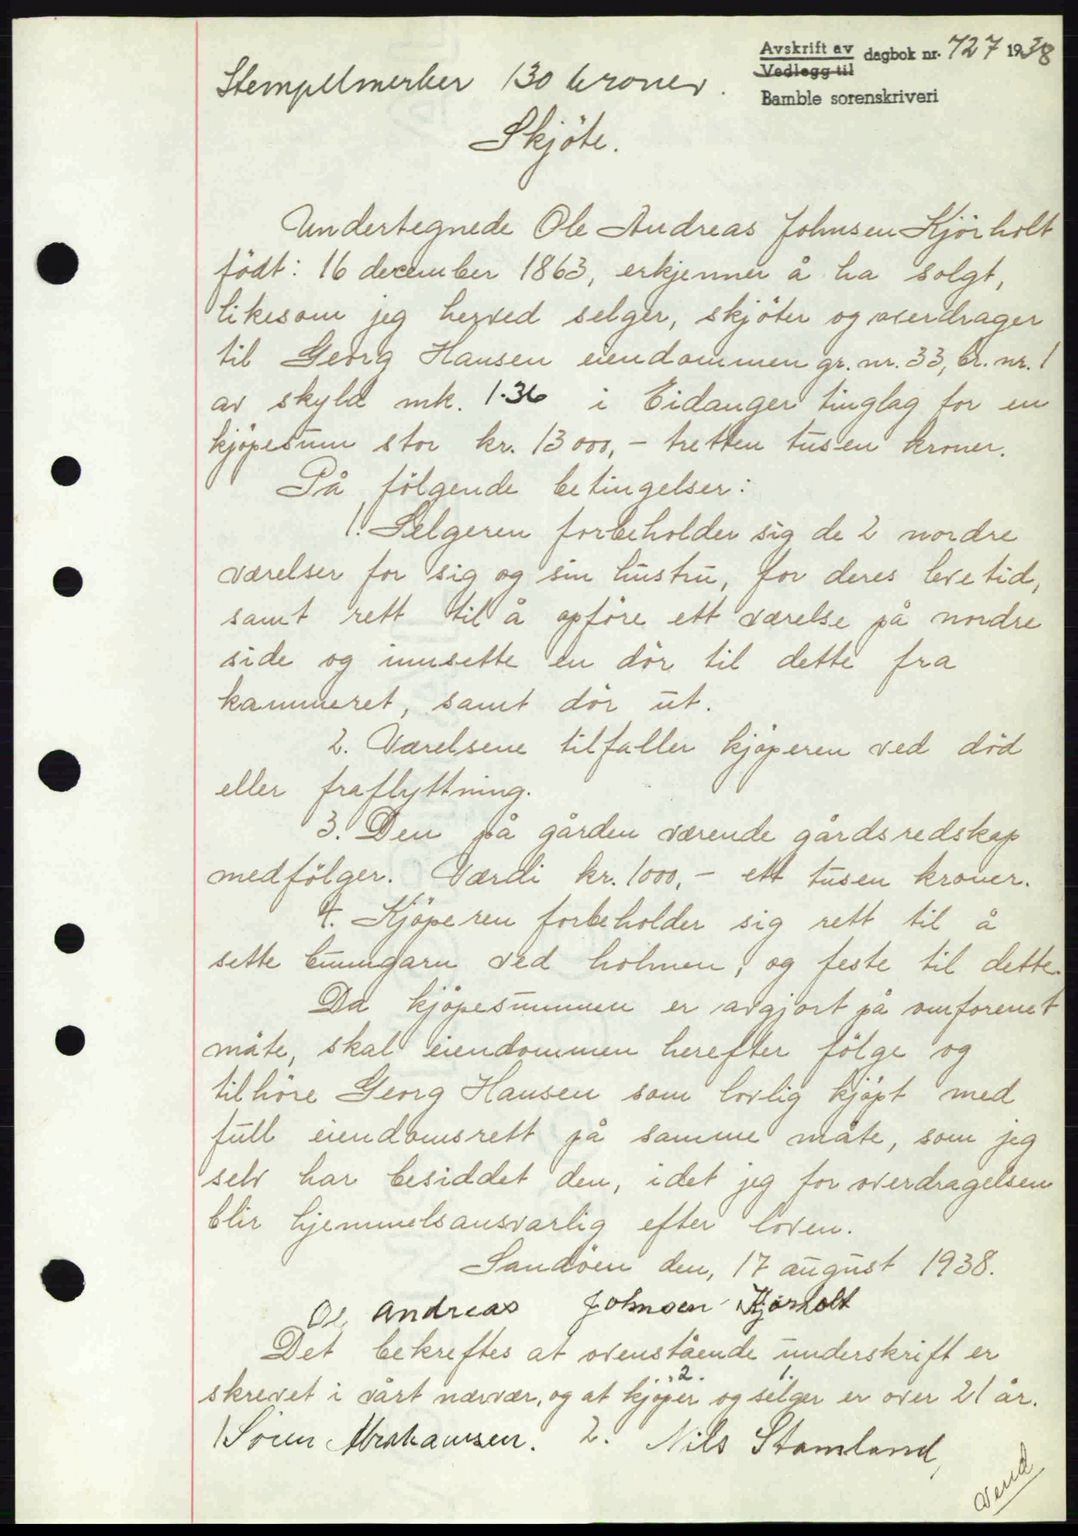 Avskrift av dagbok nr. 727 1938
Vedlegg til
Bamble sorenskriveri
Stempelmerker 130 kroner.
Skjöte.
Undertegnede Ole Andreas Johnsen Kjörholt
födt: 16 december 1863, erkjenner å ha solgt,
likesom jeg herved selger, skjöter og overdrager
til Georg Hansen eiendommen gr. nr. 33, br. nr. 1
av skyld mk. 1.36 i Eidanger tinglag for en
kjöpesum stor kr. 13000,- tretten tusen kroner.
På fölgende betingelser:
1. Selgeren forbeholder sig de 2 nordre
værelser for sig og sin hustru, for deres levetid,
samt rett til å opföre ett værelse på nordre
side og innsette en dör til dette fra
kammeret, samt dör ut.
2. Værelsene tilfaller kjöperen ved död
eller fraflyttning.
3. Den på gården værende gårdsredskap
medfölger. Værdi kr. 1000,- ett tusen kroner.
4. Kjöperen forbeholder sig rett til å
sette bunngarn ved holmen, og feste til dette.
Da kjöpesummen er avgjort på omforenet
måte, skal eiendommen herefter fölge og
tilhöre Georg Hansen som lovlig kjöpt med
full eiendomsrett på samme måte, som jeg
selv har besiddet den, idet jeg for overdragelsen
blir hjemmelsansvarlig efter loven.
Sandöen den, 17 august 1938.
Ol. Andreas Johnsen Kjörholt
Det bekreftes at ovenstående underskrift er
skrevet i vårt nærvær, og at kjöper 2. og selger 1. er over 21 år.
1 Sören Abrahamsen. 2. Nils Stamland,
Vend